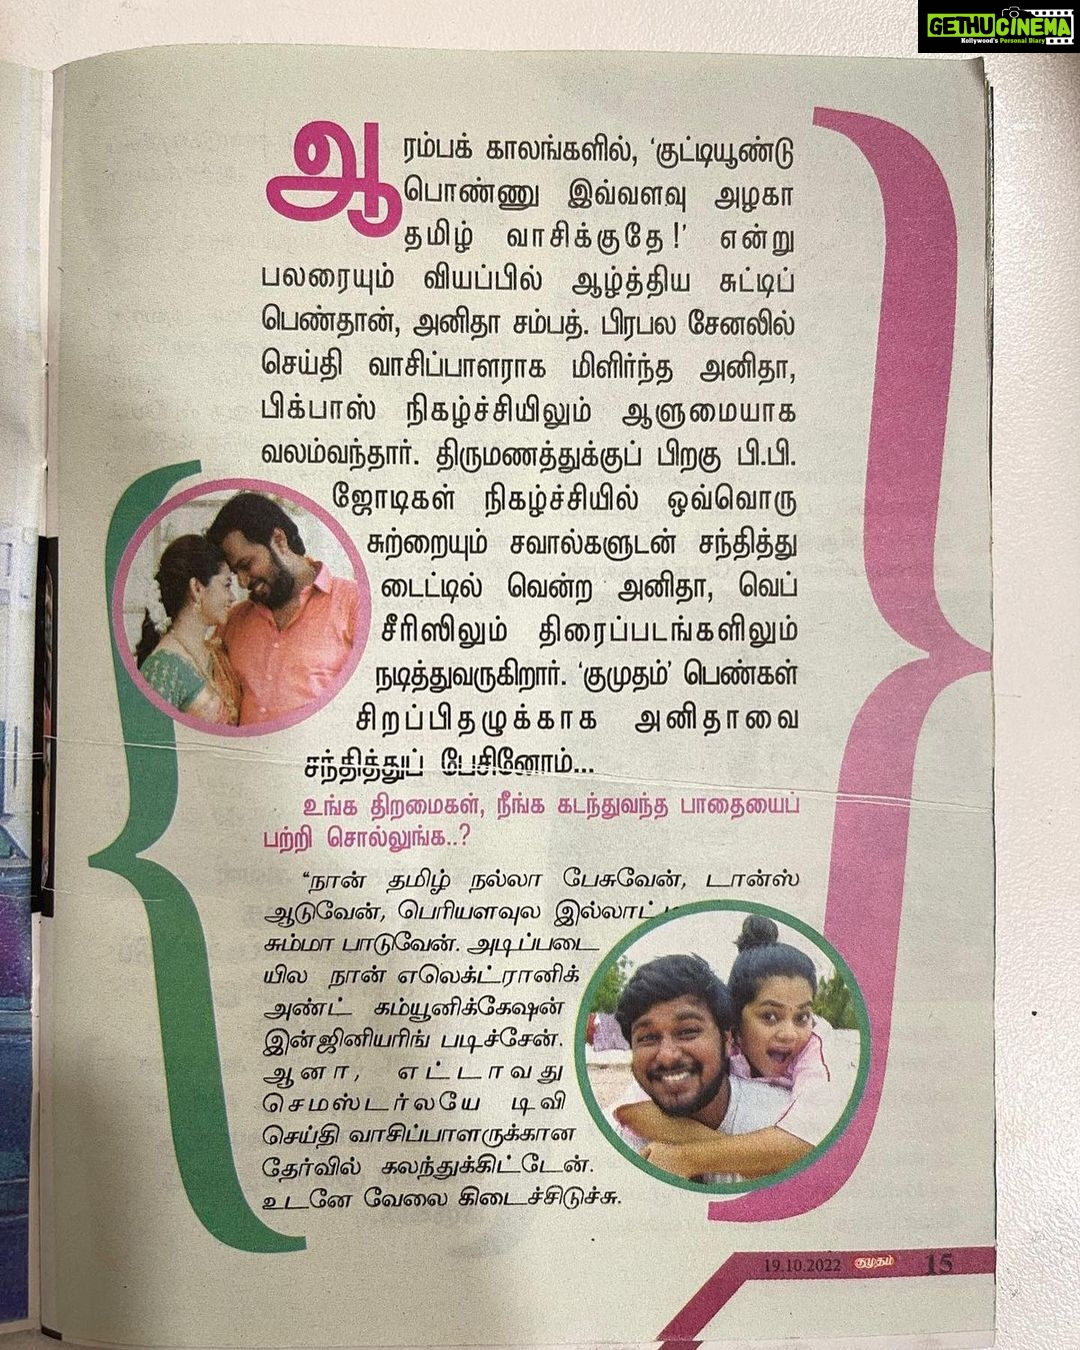 GETHU CINEMA
Kollywood's Personal Diary
ஆரம்பக் காலங்களில், ‘குட்டியூண்டு
பொண்ணு இவ்வளவு அழகா
தமிழ் வாசிக்குதே!’ என்று
பலரையும் வியப்பில் ஆழ்த்திய சுட்டிப்
பெண்தான், அனிதா சம்பத். பிரபல சேனலில்
செய்தி வாசிப்பாளராக மிளிர்ந்த அனிதா,
பிக்பாஸ் நிகழ்ச்சியிலும் ஆளுமையாக
வலம்வந்தார். திருமணத்துக்குப் பிறகு பி.பி.
ஜோடிகள் நிகழ்ச்சியில் ஒவ்வொரு
சுற்றையும் சவால்களுடன் சந்தித்து
டைட்டில் வென்ற அனிதா, வெப்
சீரிஸிலும் திரைப்படங்களிலும்
நடித்துவருகிறார். ‘குமுதம்’ பெண்கள்
சிறப்பிதழுக்காக அனிதாவை
சந்தித்துப் பேசினோம்...
உங்க திறமைகள், நீங்க கடந்துவந்த பாதையைப்
பற்றி சொல்லுங்க..?
“நான் தமிழ் நல்லா பேசுவேன், டான்ஸ்
ஆடுவேன், பெரியளவுல
சும்மா பாடுவேன். அடிப்படை
யில நான் எலெக்ட்ரானிக்
அண்ட் கம்யூனிக்கேஷன்
இன்ஜினியரிங் படிச்சேன்.
ஆனா, எட்டாவது
செமஸ்டர்லயே டிவி
செய்தி வாசிப்பாளருக்கான
தேர்வில் கலந்துக்கிட்டேன்.
உடனே வேலை கிடைச்சிடுச்சு.
19.10.2022 குமுதம் 15